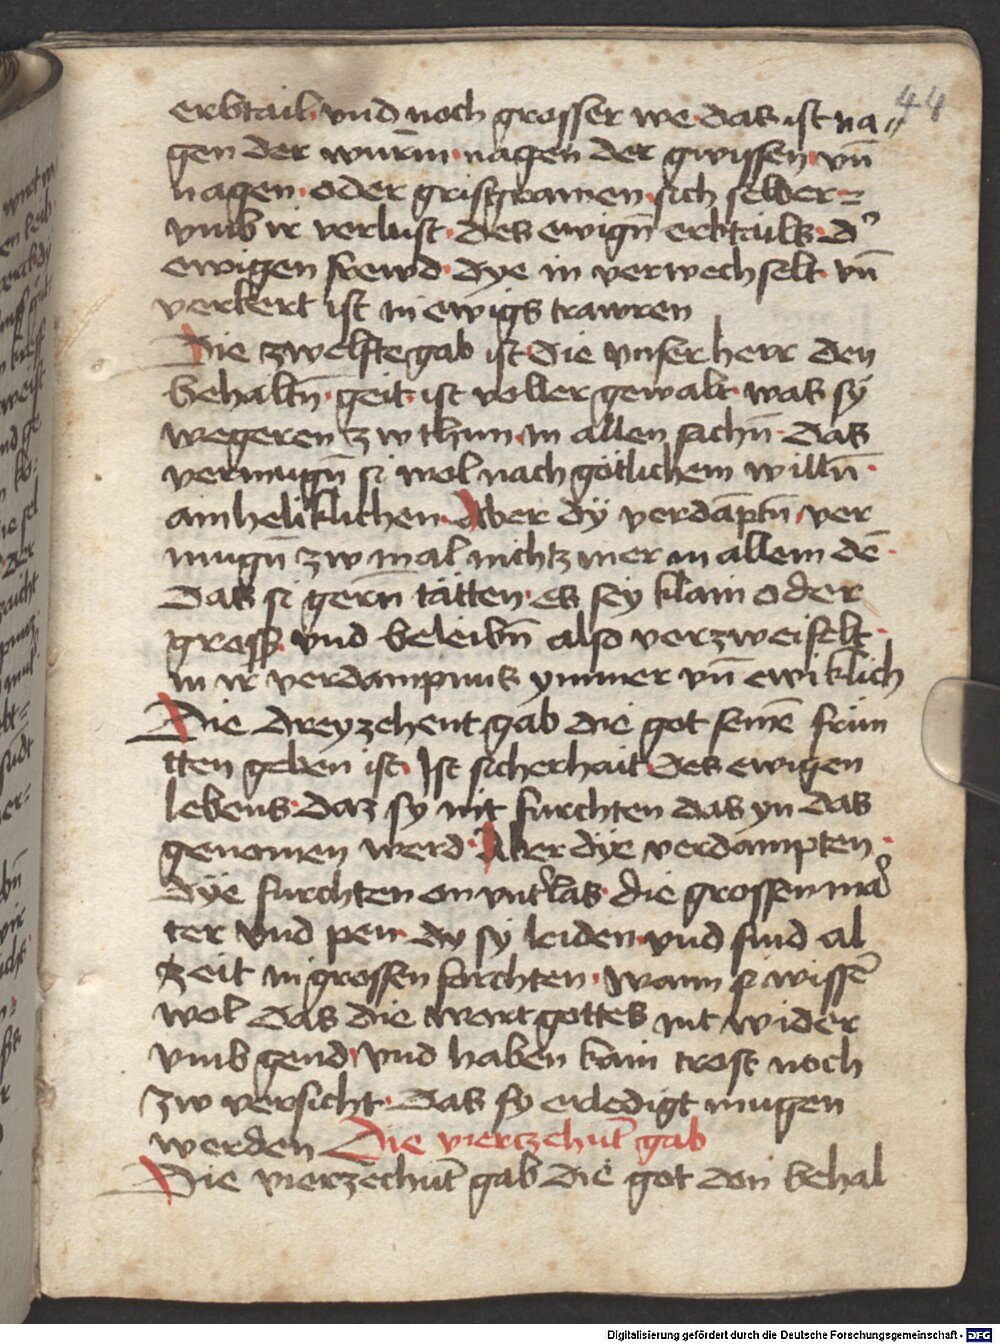 44
erbtail · vnd noch grosser we · das ist na〃
gen der wurm̄ · nagen der gwissen · vn̄
nagen · oder grisgramen · sich selber =
vmb ir verlust · des ewign̄ erbtails · d'
ewigen frewd · dye in verwechselt · vn̄
verkert ist in ewigs trawren
Die zwelfte gab ist die vnser herr den
behaltn̄ · geit · ist voller gewalt · was sy
wegeren zw thun · in allen sachn̄ · das
vermugn̄ si wol nach götlichem willn̄ ·
ainhelliklichen · Aber dÿ verdāptn̄ · ver
mugn̄ zw mal nichtz mer in allem dē ·
das si gern̄ tätten · es sey klain oder
gross · vnd beleibn̄ also verzweifelt ·
in ir verdampnus ymmer vn̄ ewiklich
Die dreyzehent gab die got seinē frün
tten geben ist · Ist sicherhait des ewigen
lebens · daz sy nit furchten das yn das
genomen werd · Aber dÿe verdampten ·
dÿe furchten on vnt'las · die grossen ma'
ter vnd pen · dy sy leiden · vnd sind al
zeit in grossen forchten · wann si wissē
wol das die wort gottes nit wider
vmb gend · vnd haben kain trost noch
zw versicht · das sy erledigt mugen
werden Die vierczehnt̄ gab
Die vierzechnt̄ gab die got den behal
Digitalisierung gefördert durch die Deutsche Forschungsgemeinschaft - DFG